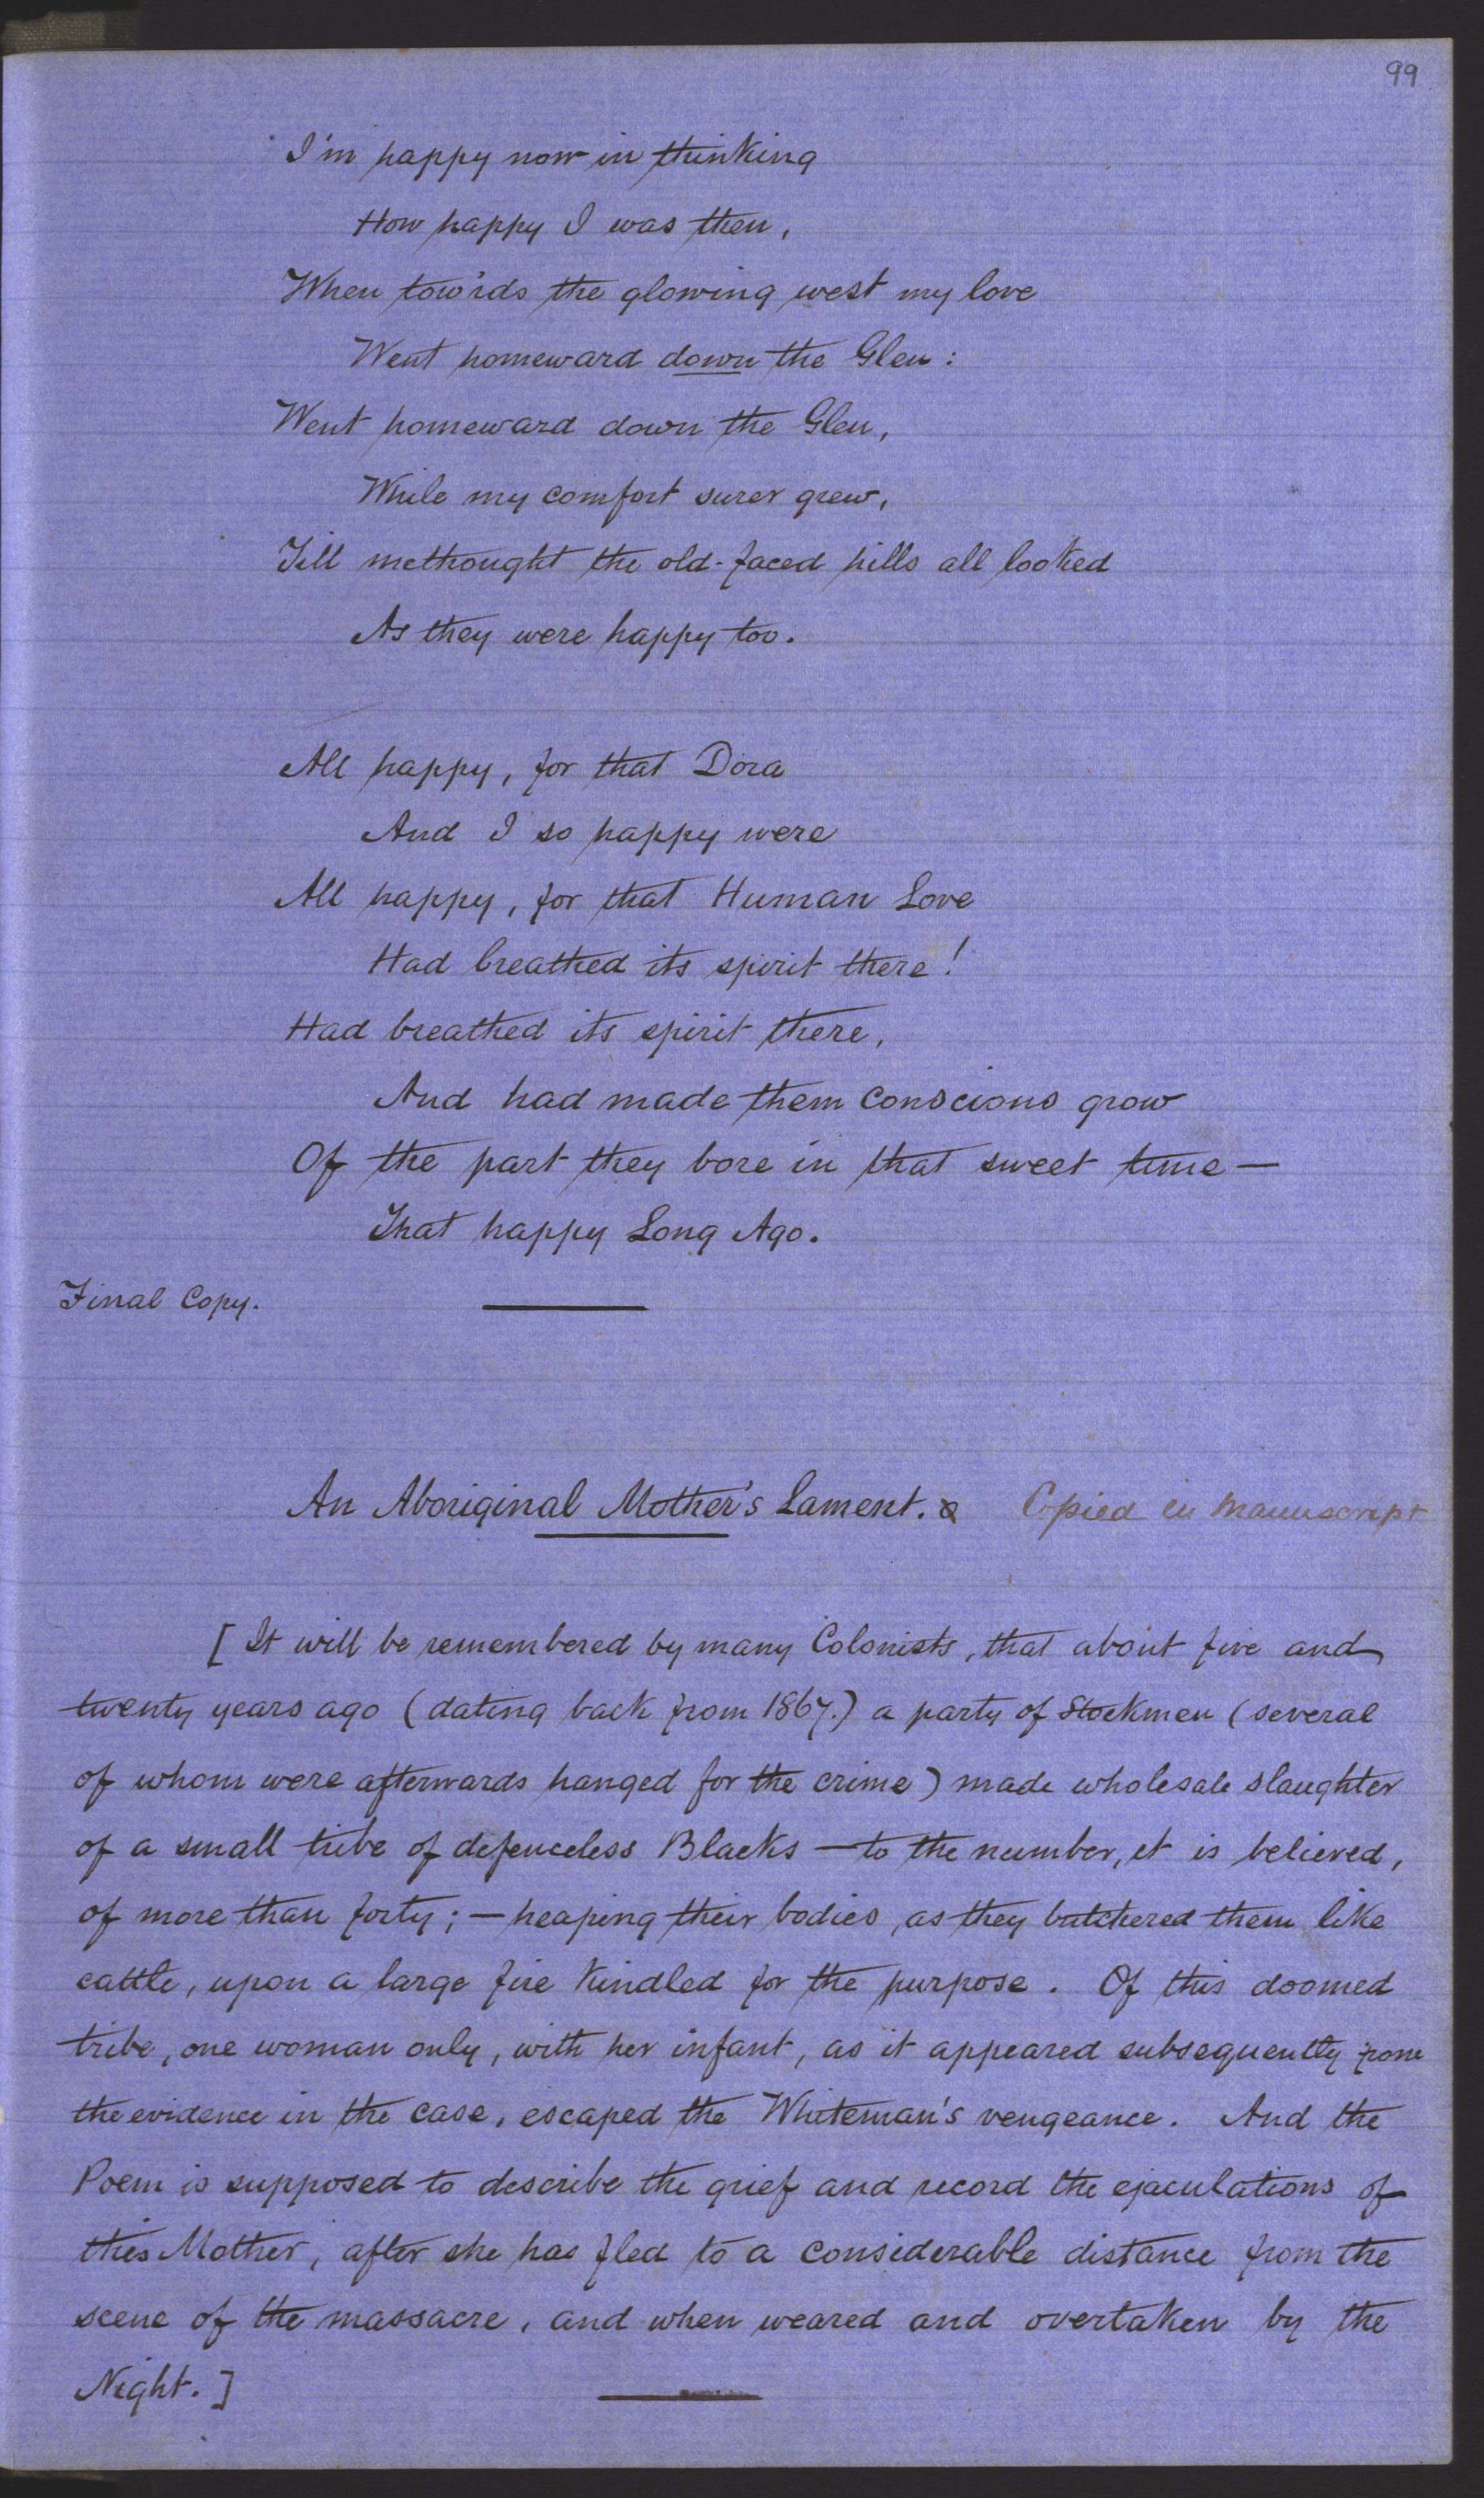 99
I'm happy now in thinking
How happy I was then,
When tow'rds the glowing west my love
Went homeward down the Glen:
Went homeward down the Glen,
While my comfort surer grew,
Till methought the old-faced hills all looked
As they were happy too.
All happy, for that Dora
And I so happy were
All happy, for that Human Love
Had breathed its spirit there!
Had breathed its spirit there,
And had made them conscious grow
Of the part they bore in that sweet time —
That happy Long Ago.
Final Copy.
An Aboriginal Mother's Lament. Copied in Manuscript
[It will be remembered by many Colonists, that about five and
twenty years ago (dating back from 1867.) a party of Stockmen (several
of whom were afterwards hanged for the crime) made wholesale slaughter
of a small tribe of defenceless Blacks — to the number, it is believed,
of more than forty; — heaping their bodies, as they butchered them like
cattle, upon a large fire kindled for the purpose. Of this doomed
tribe, one woman only, with her infant, as it appeared subsequently from
the evidence in the case, escaped the Whiteman's vengeance. And the
Poem is supposed to describe the grief and record the ejaculations of
this Mother, after she has fled to a considerable distance from the
scene of the massacre, and when weared and overtaken by the
Night.]